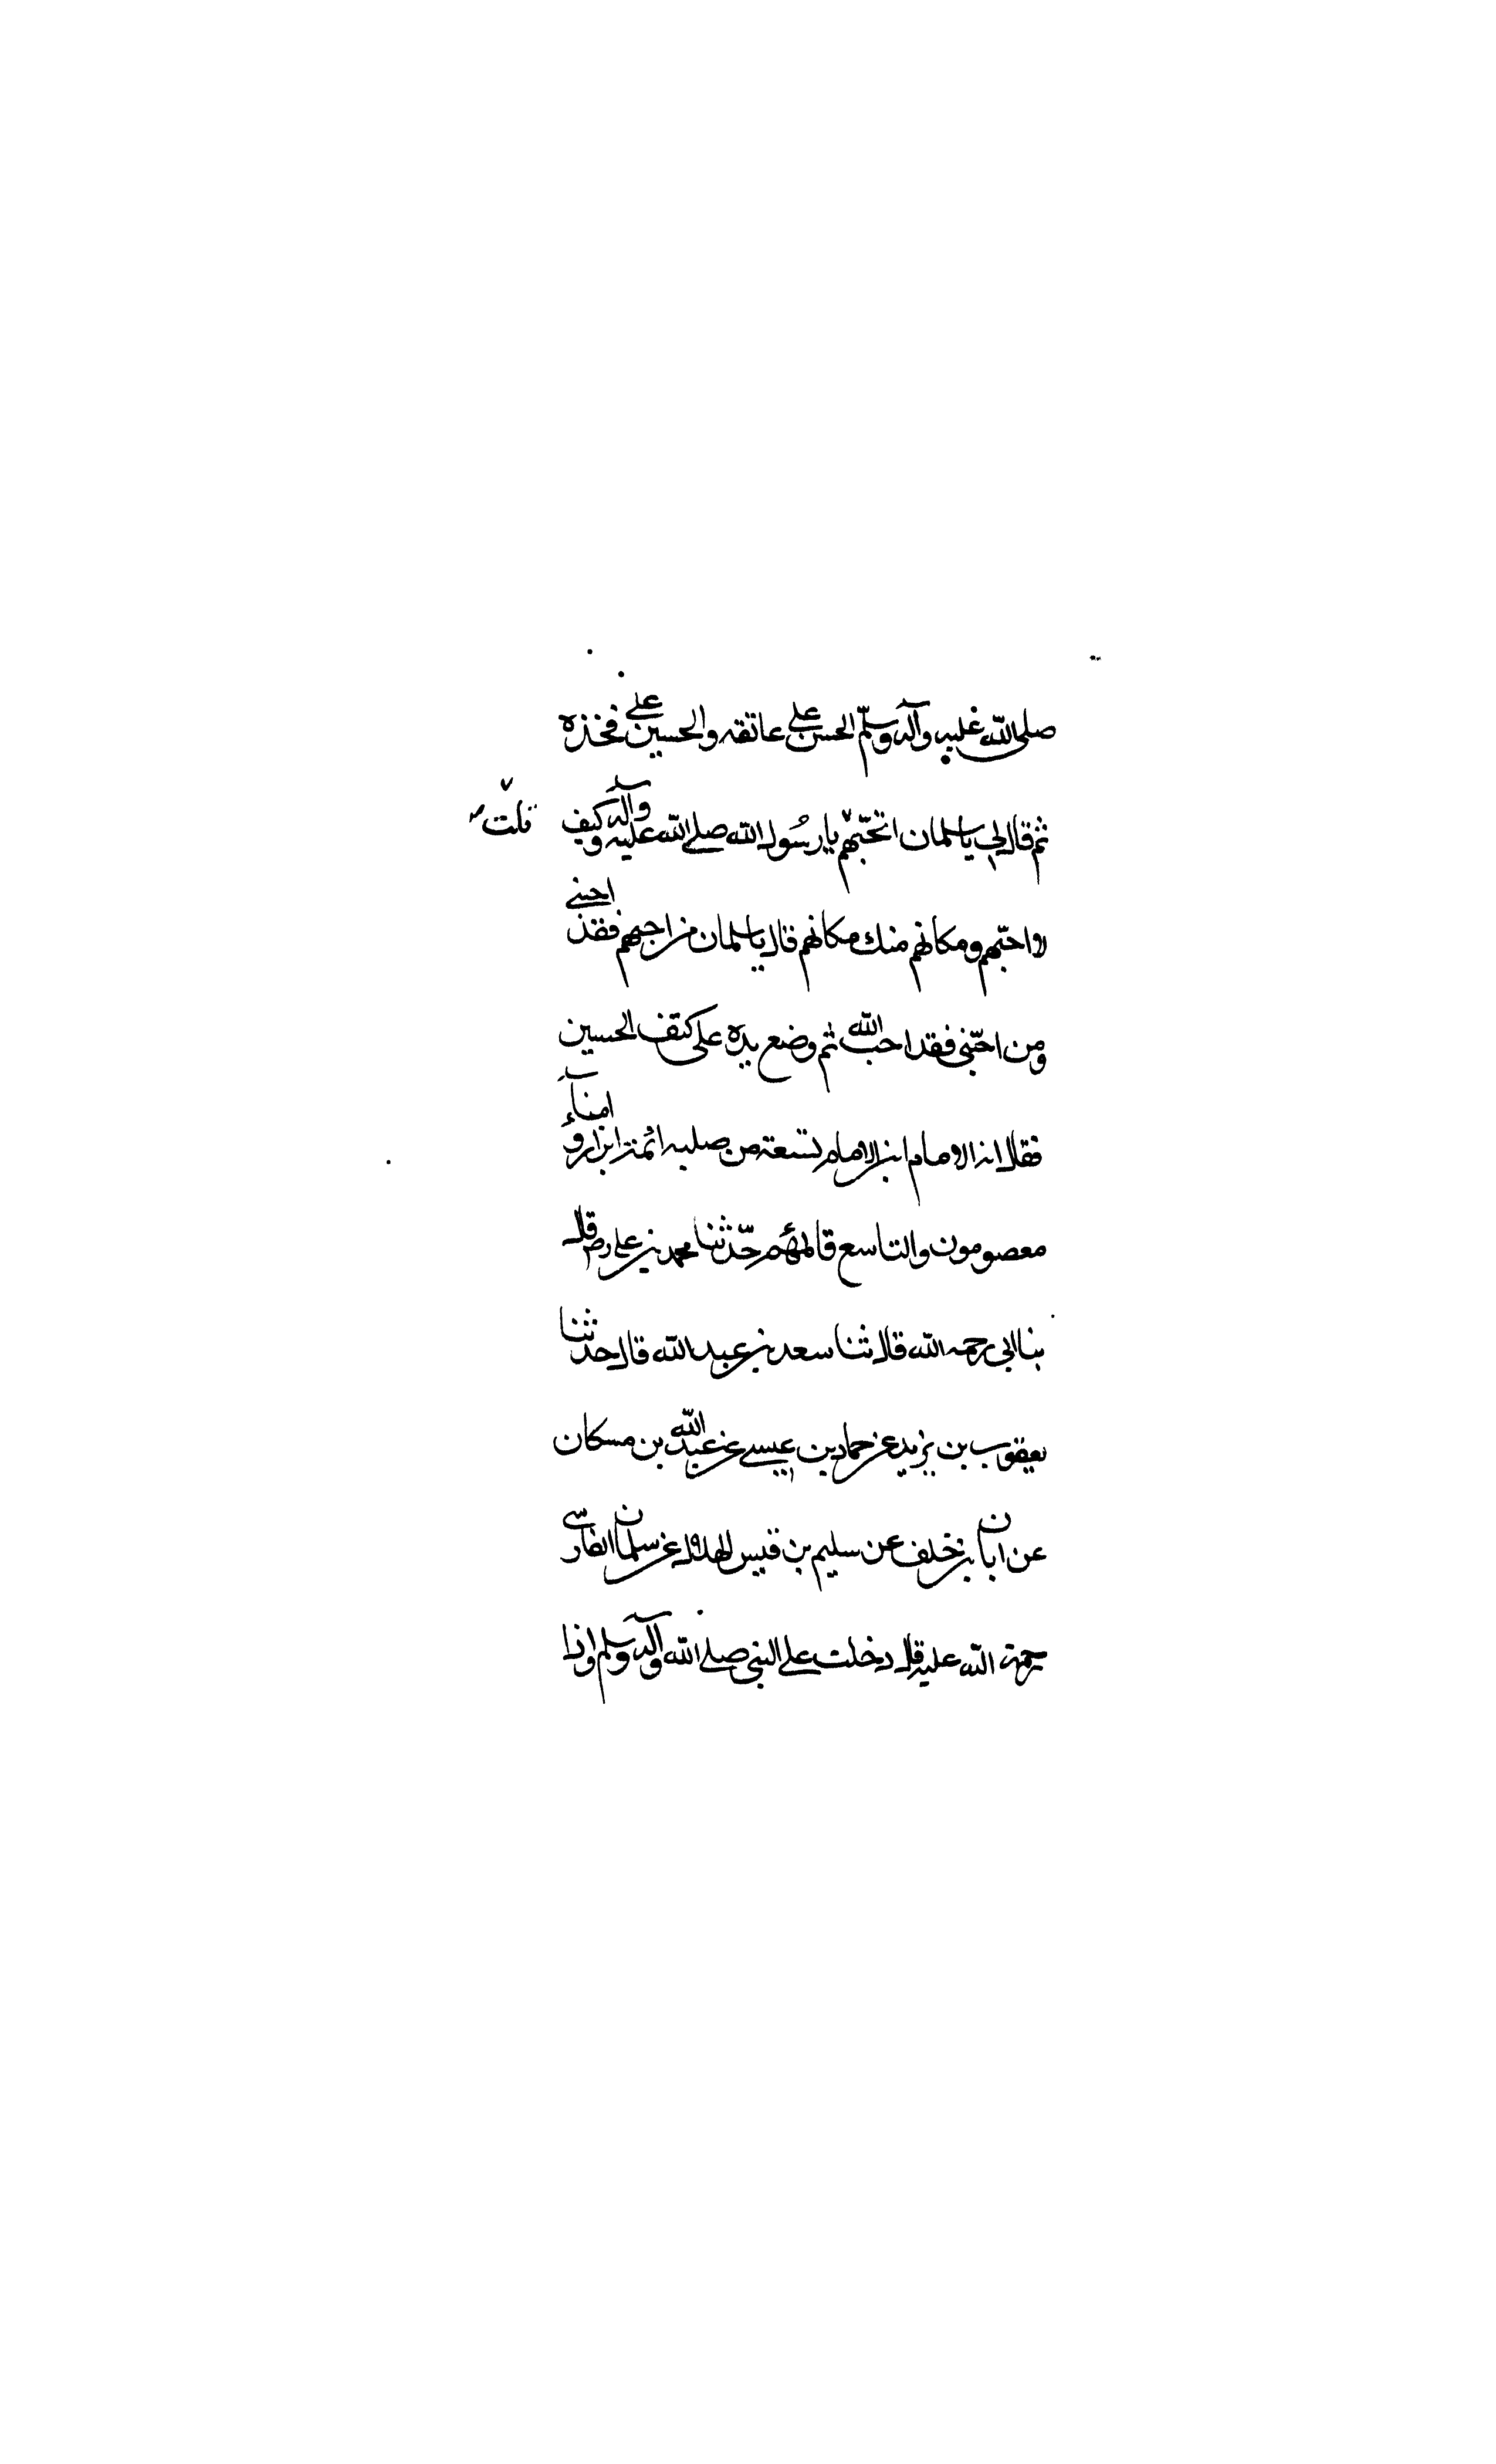 صلى الله عليه وآله وسلّم الحسن على عاتقه والحسين على فخذه
ثم قال لي يا سلمان اتحبّهم يا رسول الله صلى الله عليه وآله وكيف
قلت
لا احبّهم ومكانهم منك مكانهم قال يا سلمان من احبهم فقد احبني
ومن احبّني فقد احب الله ثم وضع يده على كتف الحسين
فقال انه الامام ابن الامام تسعة من صلبه ائمة ابرار و امناء
معصومون والتاسع قائمهم حدّثنا محمد بن علي رض قال
ثنا ابي رحمه الله قال ثنا سعد بن عبد الله قال حدثنا
يعقوب بن يزيد عن حماد بن عيسى عن عبد الله بن مسكان
عن ابان بن خلف عن سليم بن قيس الهلالي عن سلمان الفارسي
رحمة الله عليه قال دخلت على النبي صلى الله وآله وسلم واذا